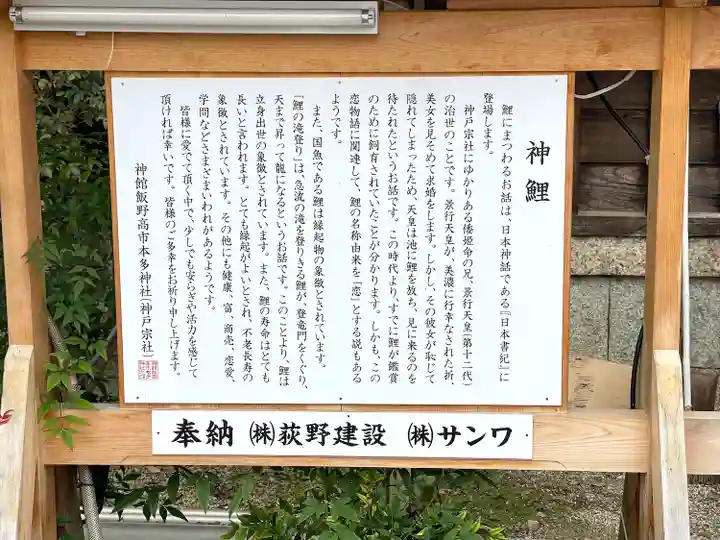 神鯉
鯉にまつわるお話は、日本神話である『日本書紀』に
登場します。
神戸宗社にゆかりある倭姫命の兄、景行天皇(第十二代)
の治世のことです。景行天皇が、美濃に行幸なされた折、
美女を見そめて求婚をします。しかし、その彼女が恥じて
隠れてしまったため、天皇は池に鯉を放ち、見に来るのを
待たれたというお話です。この時代より、すでに鯉が鑑賞
のために飼育されていたことが分かります。しかも、この
恋物語に関連して、鯉の名称由来を「恋」とする説もある
ようです。
また、国魚である鯉は縁起物の象徴とされています。
「鯉の滝登り」は、急流の滝を登りきる鯉が、登竜門をくぐり、
天まで昇って龍になるというお話です。このことより、鯉は
立身出世の象徴とされています。また、鯉の寿命はとても
長いと言われます。とても縁起がよいとされ、不老長寿の
象徴とされています。その他にも健康、富、商売、恋愛、
学問などさまざまいわれがあるようです。
皆様に愛でて頂く中で、少しでも安らぎや活力を感じて
頂ければ幸いです。皆様のご多幸をお祈り申し上げます。
神館飯野高市本多神社(神戸宗社)
奉納 ㈱荻野建設 ㈱サンワ